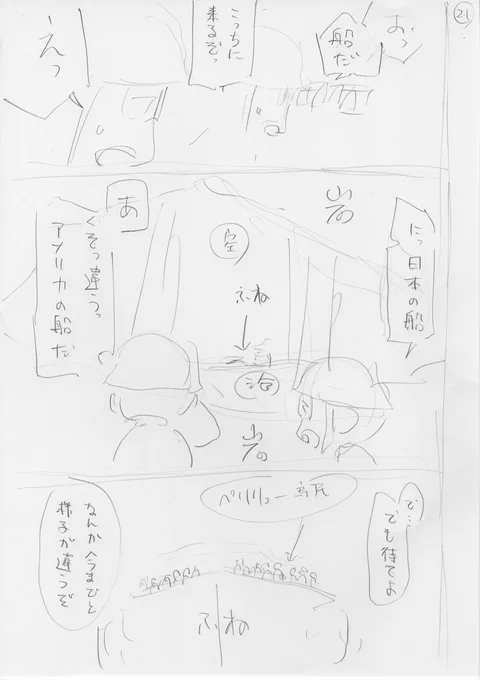 21
おっ
船だ
こっちに
来るぞっ
えっ
岩の
にっ日本の船
空
ふね
海
岩の
あ
くそっ違うっ
アメリカの船だ
で…
でも待てよ
ペリリュー島民
なんか今までと
様子が違うぞ
ふね